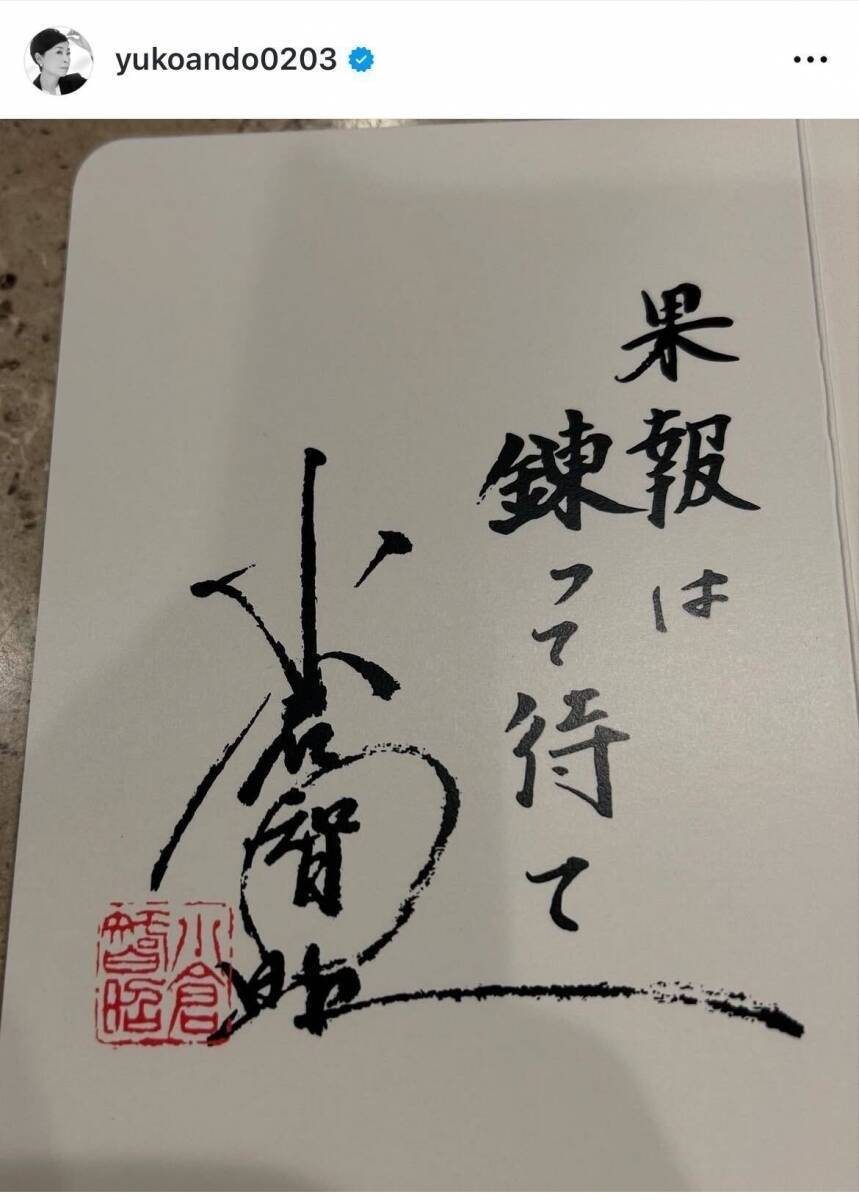 yukoando0203
果報は
錬って待て
小倉智昭
小倉
智昭